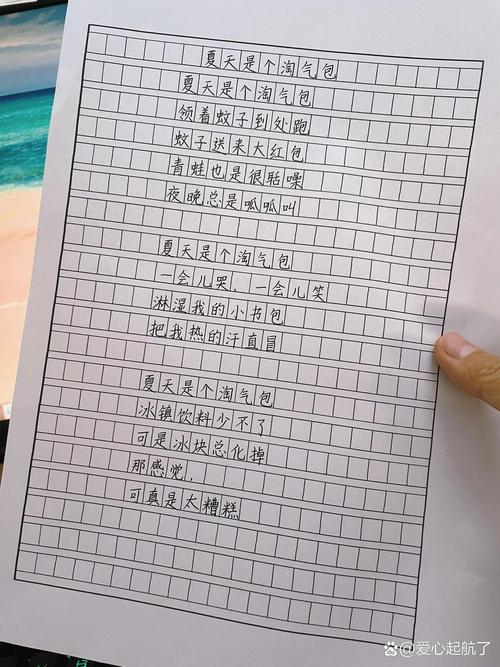 夏天是个淘气包
夏天是个淘气包
领着蚊子到处跑
蚊子送来大红包
青蛙也是很聒噪
夜晚总是呱呱叫
夏天是个淘气包
一会儿哭，一会儿笑
淋湿我的小书包
把我热的汗直冒
夏天是个淘气包
冰镇饮料少不了
可是冰块总化掉
那感觉，
可真是太糟糕
@爱心起航了